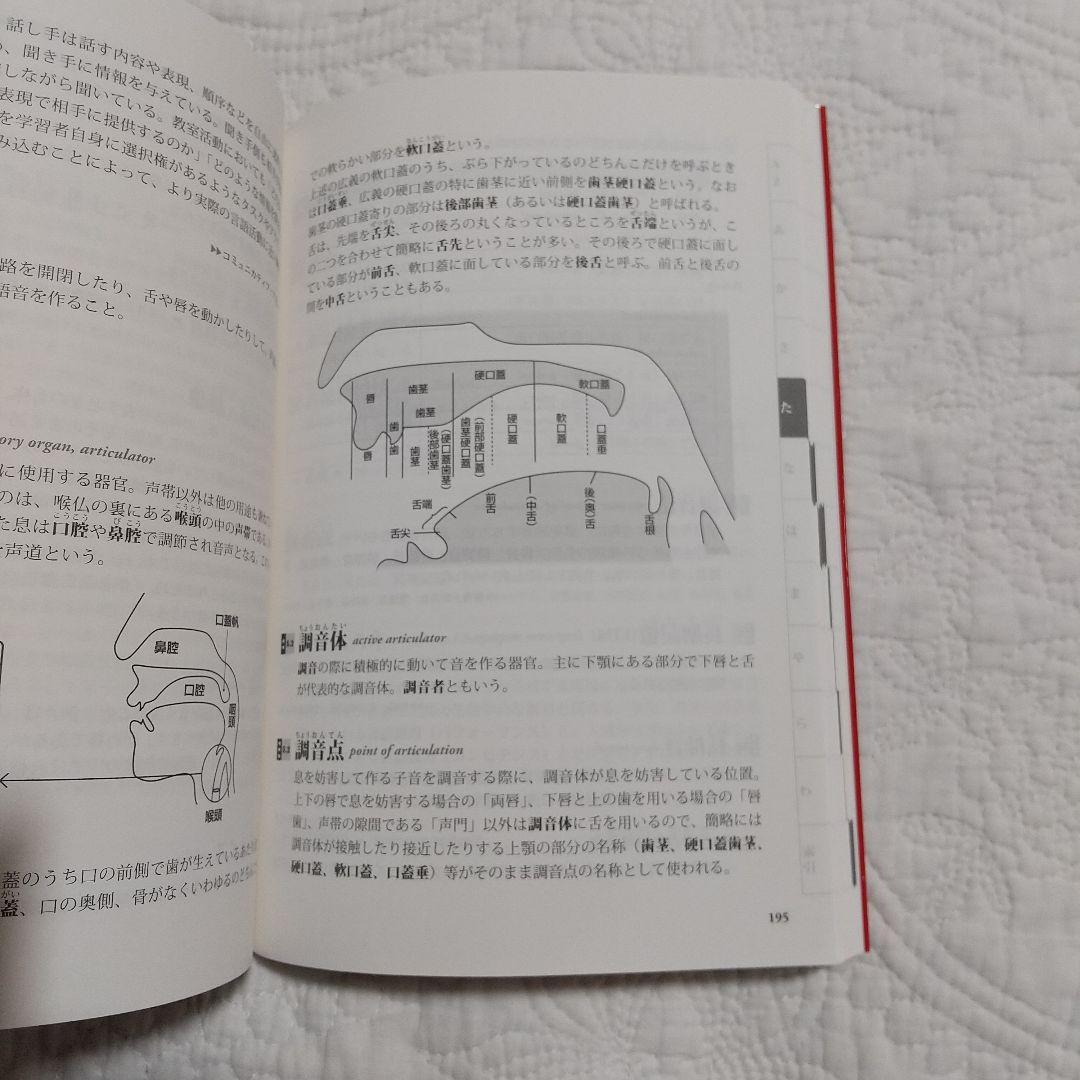 話し手は話す内容や表現、順序などを
、聞き手に情報を与えている。聞き手
しながら聞いている。教室活動においても
表現で相手に提供するのか」「どのような
を学習者自身に選択権があるようなタスク
み込むことによって、より実際の言語活動に
▶▶コミュニカティブ
路を開閉したり、舌や唇を動かしたりして、
語音を作ること。
ory organ, articulator
に使用する器官。声帯以外は他の用途も
のは、喉仏の裏にある喉頭の中の声帯である
こうとう
た息は口腔や鼻腔で調節され音声となる。
こうこう
びこう
声道という。
口蓋帆
鼻腔
口腔
咽頭
喉頭
蓋のうち口の前側で歯が生えているあた
蓋、口の奥側、骨がなくいわゆるのどち
がい
での軟らかい部分を軟口蓋という。
なんこうがい
上述の広義の軟口蓋のうち、ぶら下がっているのどちんこだけを呼ぶとき
は口蓋垂、広義の硬口蓋の特に歯茎に近い前側を歯茎硬口蓋という。なお
歯茎の硬口蓋寄りの部分は後部歯茎（あるいは硬口蓋歯茎）と呼ばれる。
舌は、先端を舌尖、その後ろの丸くなっているところを舌端というが、こ
の二つを合わせて簡略に舌先ということが多い。その後ろで硬口蓋に面し
ている部分が前舌、軟口蓋に面している部分を後舌と呼ぶ。前舌と後舌の
間を中舌ということもある。
唇
歯茎
硬口蓋
軟口蓋
歯
歯茎
唇
歯
歯茎
後部歯茎
（硬口蓋歯茎）
歯茎硬口蓋
（前部硬口蓋）
硬口蓋
軟口蓋
口蓋垂
舌端
舌尖
前舌
（中舌）
後（奥）舌
舌根
ちょうおんたい
調音体 active articulator
調音の際に積極的に動いて音を作る器官。主に下顎にある部分で下唇と舌
が代表的な調音体。調音者ともいう。
ちょうおんてん
調音点 point of articulation
息を妨害して作る子音を調音する際に、調音体が息を妨害している位置。
上下の唇で息を妨害する場合の「両唇」、下唇と上の歯を用いる場合の「唇
歯」、声帯の隙間である「声門」以外は調音体に舌を用いるので、簡略には
調音体が接触したり接近したりする上顎の部分の名称（歯茎、硬口蓋歯茎、
硬口蓋、軟口蓋、口蓋垂）等がそのまま調音点の名称として使われる。
195
か
さ
た
な
は
ま
や
ら
わ